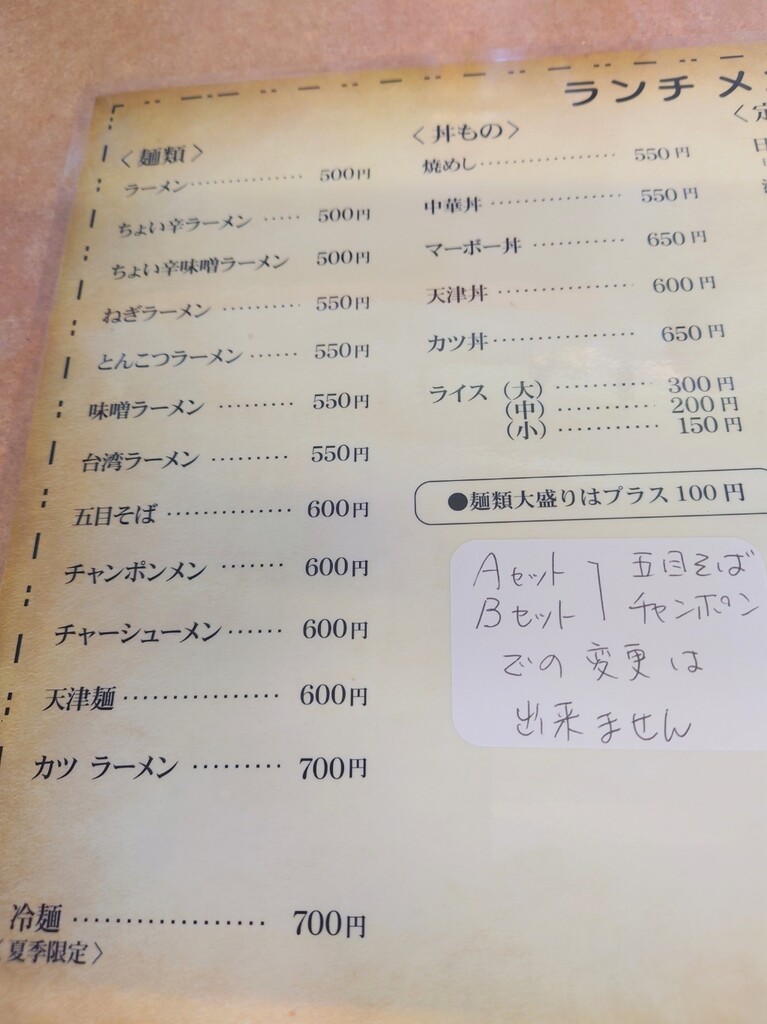 ランチ メ
〈麺類〉
ラーメン……………… 500円
ちょい辛ラーメン …… 500円
ちょい辛味噌ラーメン 500円
ねぎラーメン ………… 550円
とんこつラーメン …… 550円
味噌ラーメン ………… 550円
台湾ラーメン ………… 550円
五目そば ……………… 600円
チャンポンメン ……… 600円
チャーシューメン…… 600円
天津麺 ………………… 600円
カツ ラーメン ………… 700円
冷麺 …………………… 700円
〈夏季限定〉
〈丼もの〉
焼めし………………… 550円
中華丼 ………………… 550円
マーボー丼 …………… 650円
天津丼 ………………… 600円
カツ丼………………… 650円
ライス（大）………… 300円
（中）………… 200円
（小）………… 150円
●麺類大盛りはプラス100円
Aセット 五目そば
Bセット チャンポン
での変更は
出来ません
〈定